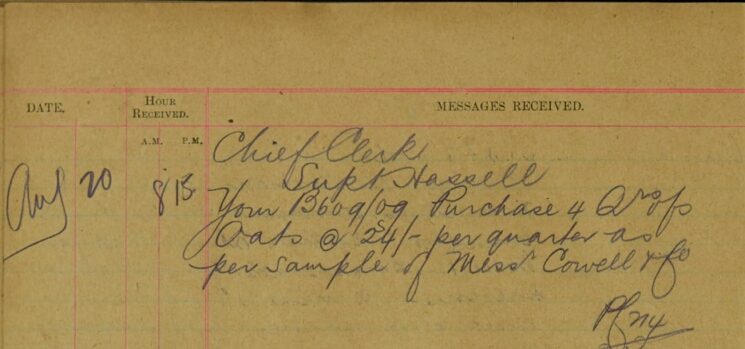 DATE. HOUR RECEIVED. MESSAGES RECEIVED.
A.M. P.M.
Chief Clerk
Aug 20 8 15 Supt Hassell
Your B609/09 Purchase 4 Qrs of
Oats @ 24/- per quarter as
per sample of Messrs Cowell & Co